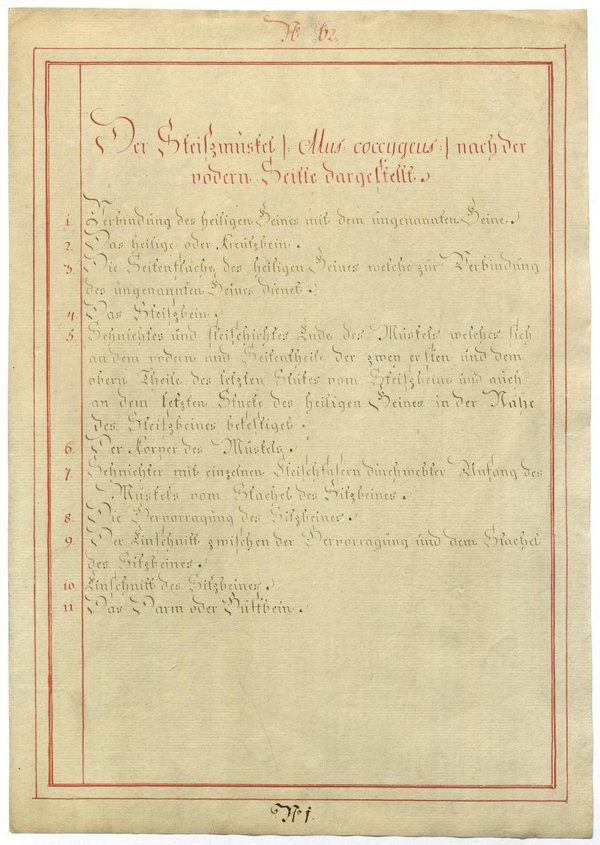 N. 162.
Der Steiszmuskel /: Mus: coccygeus :/ nach der
vodern Seitte dargestellt.
1. Verbindung des heiligen Beines mit dem ungenannten Beine.
2. Das heilige oder Kreutzbein.
3. Die Seitenfläche des heiligen Beines welche zur Verbindung
des ungenannten Beines dienet.
4. Das Steiszbein.
5. Sehnichtes und fleischichtes Ende des Muskels welches sich
an dem vodern und Seitentheile der zwey ersten und dem
obern Theile des letzten Stükes vom Steiszbeine und auch
an dem letzten Stucke des heiligen Beines in der Nähe
des Steiszbeines befestiget.
6. Der Körper des Muskels.
7. Sehnichter mit einzelnen Fleischfasern durchwebter Anfang des
Muskels vom Stachel des Sitzbeines.
8. Die Hervorragung des Sitzbeines.
9. Der Einschnitt zwischen der Hervorragung und dem Stachel
des Sitzbeines.
10. Einschnitt des Sitzbeines.
11. Das Darm oder Hüftbein.
N. 1.